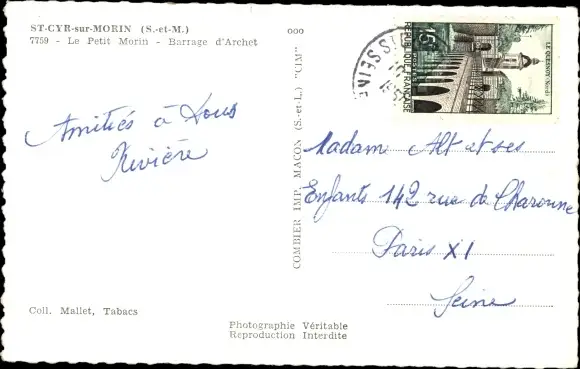 ST-CYR-sur-MORIN (S.-et-M.)
7759 - Le Petit Morin - Barrage d'Archet
Amitiés à tous
Rivière
Coll. Mallet, Tabacs
ooo
COMBIER IMP. MACON (S.-et-L.) "CIM"
Photographie Véritable
Reproduction Interdite
SEINE
15F
POSTES
REPUBLIQUE FRANÇAISE
LE QUESNOY (Nord)
Madame Alt et ses
Enfants 142 rue de Charonne
Paris XI
Seine